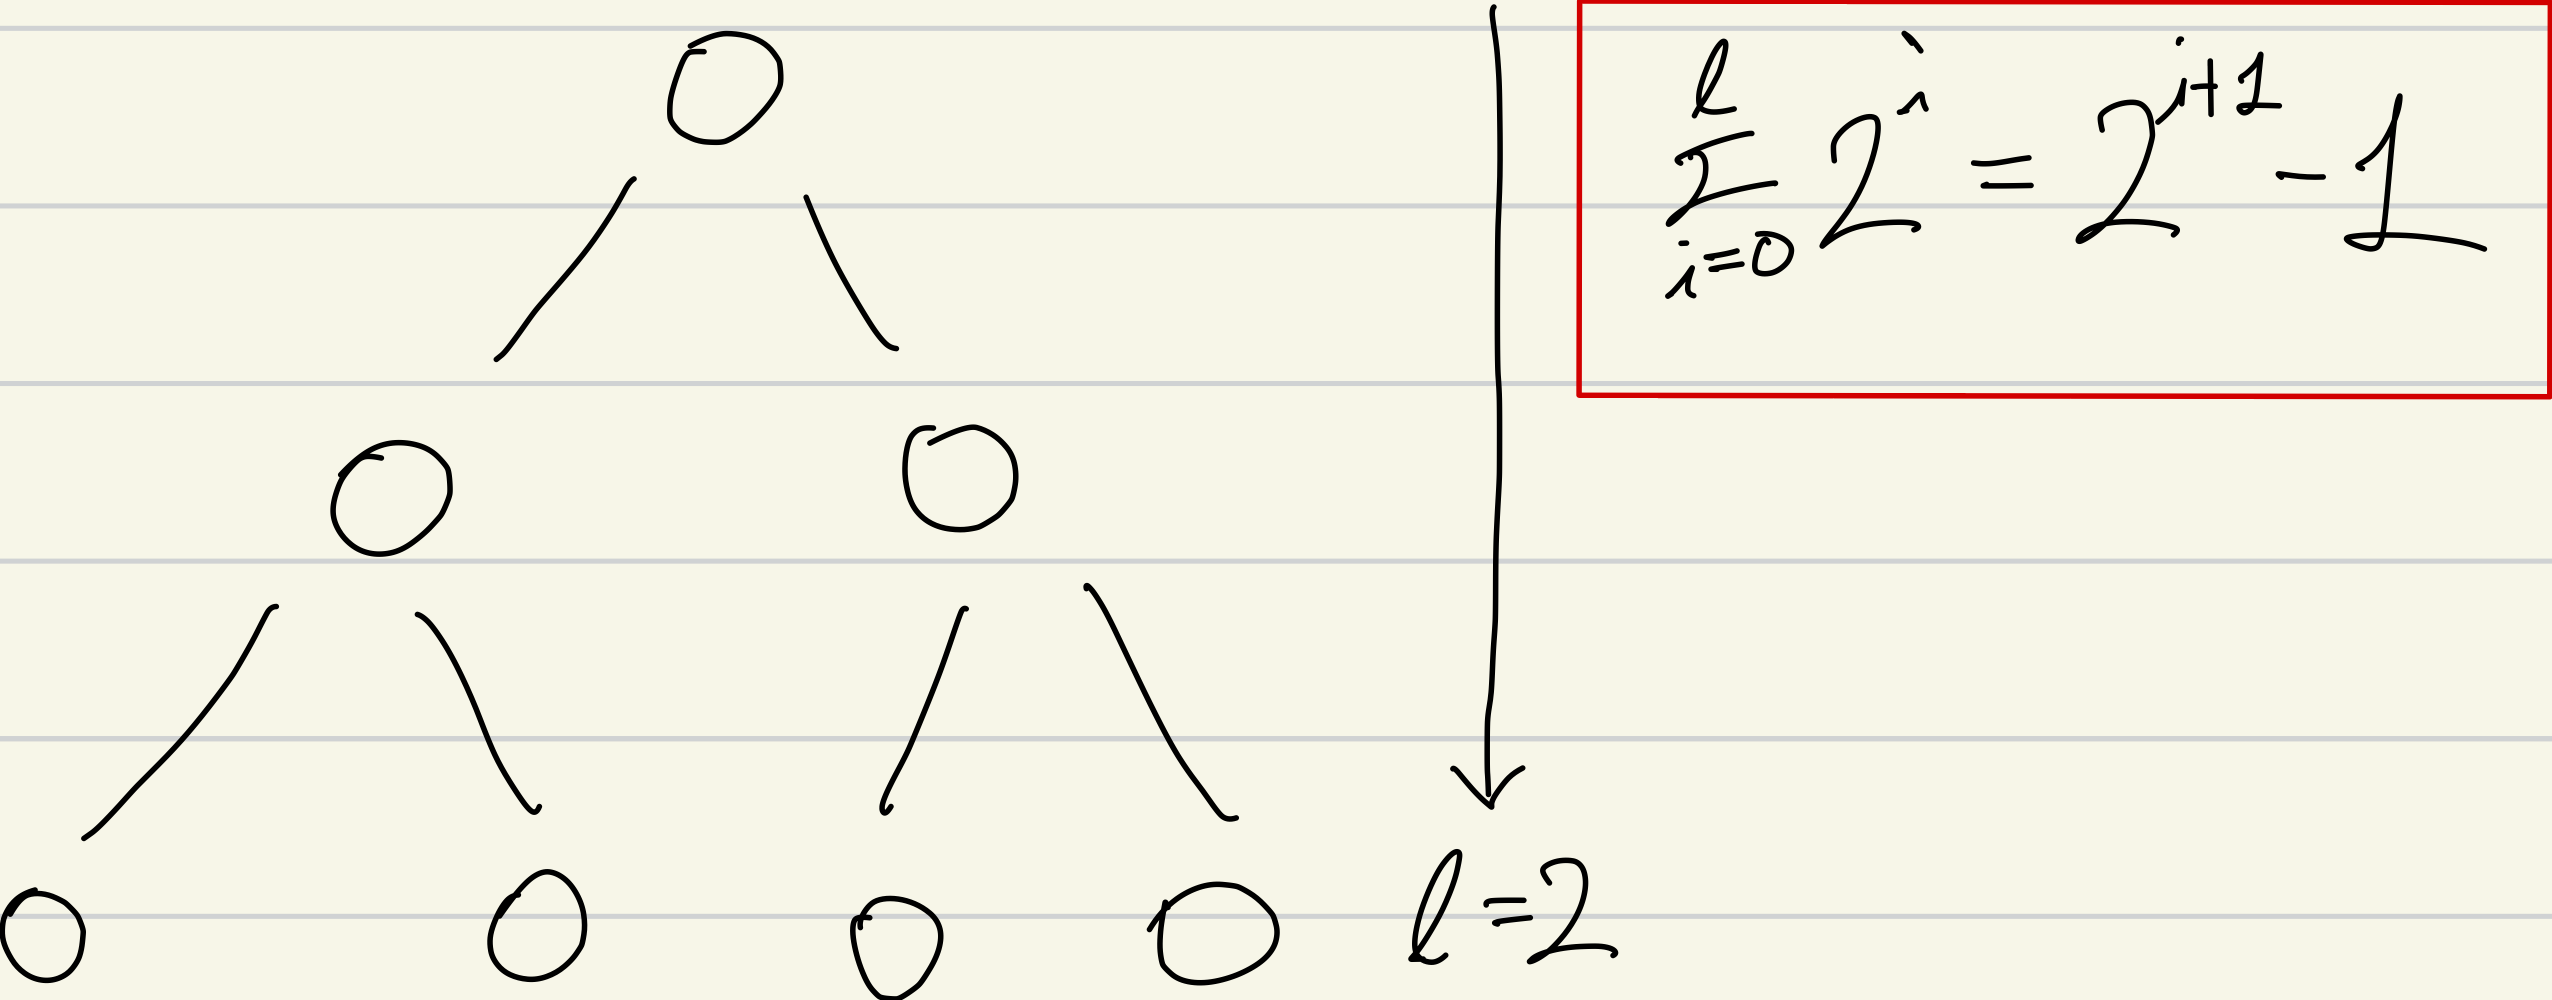 \sum_{i=0}^{l} 2^{i} = 2^{i+1} - 1
l = 2